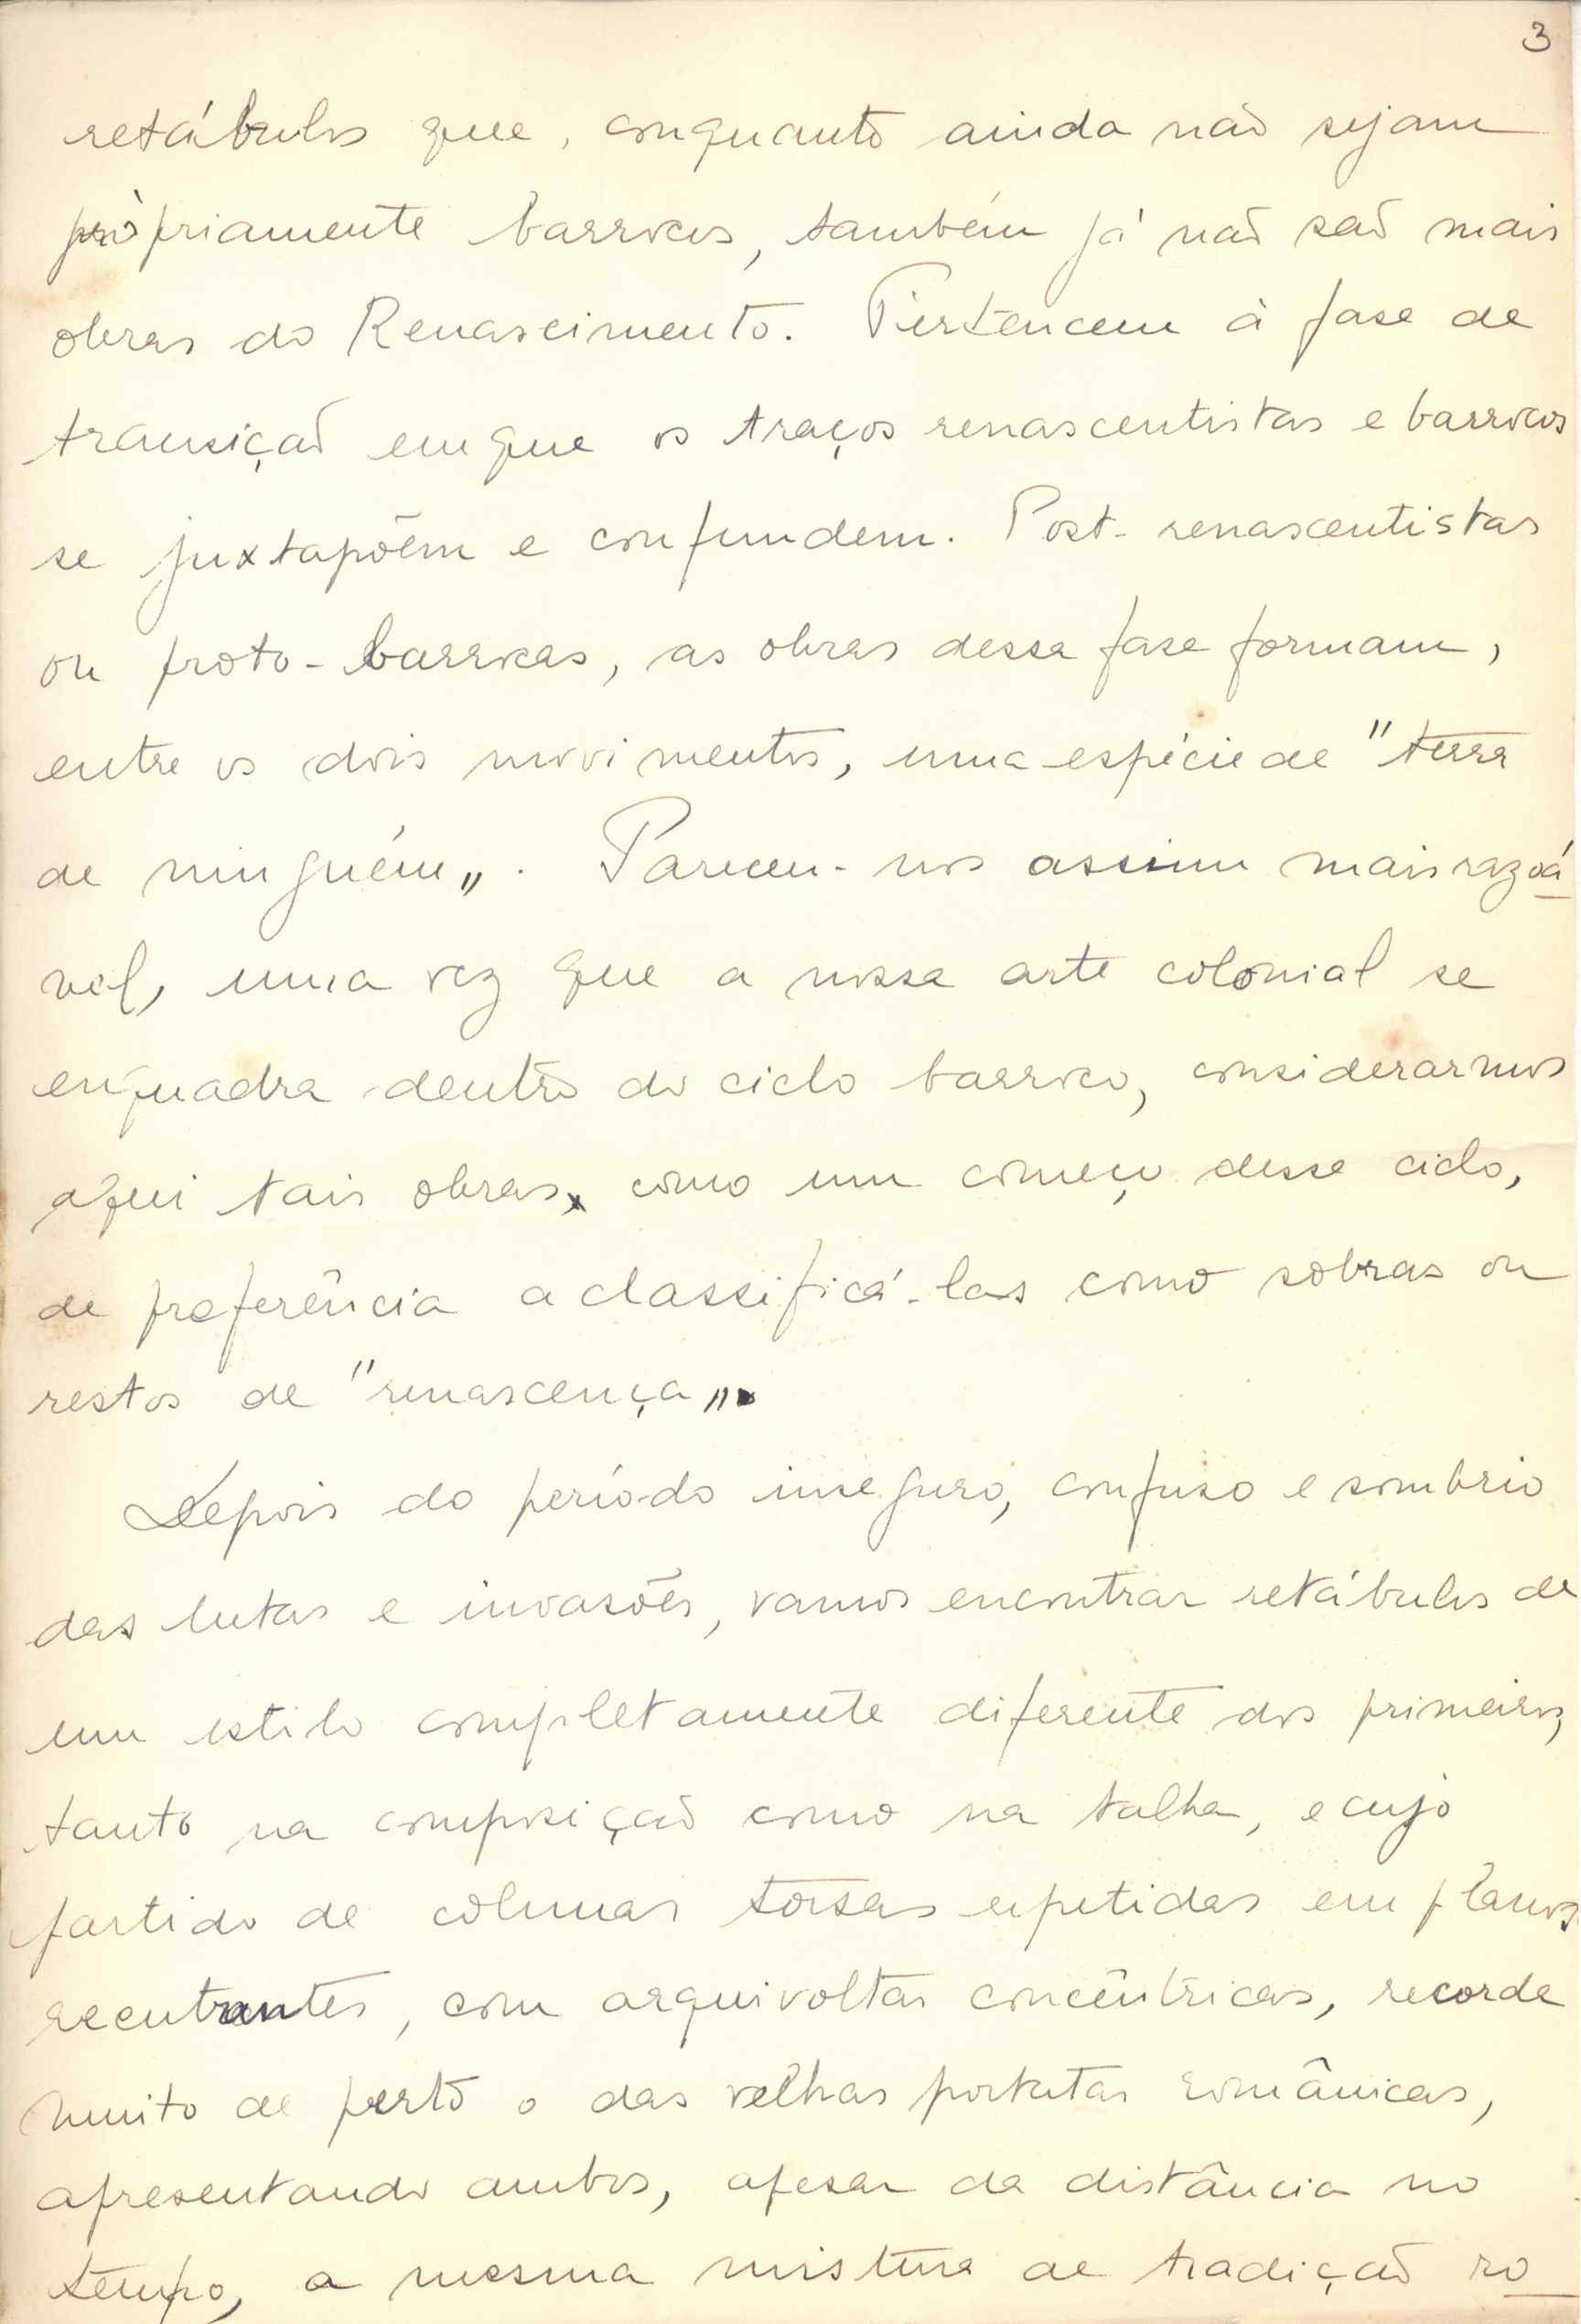 3
retábulos que, conquanto ainda não sejam
pròpriamente barrocos, também já não são mais
obras do Renascimento. Pertencem à fase de
transição em que os traços renascentistas e barrocos
se juxtapõem e confundem. Post-renascentistas
ou proto-barrocas, as obras dessa fase formam,
entre os dois movimentos, uma espécie de "terra
de ninguém„. Pareceu-nos assim mais razoá
vel, uma vez que a nossa arte colonial se
enquadra dentro do ciclo barroco, considerarmos
aqui tais obras como um começo desse ciclo,
de preferência a classificá-las como sobras ou
restos de "renascença„.
Depois do período inseguro, confuso e sombrio
das lutas e invasões, vamos encontrar retábulos de
um estilo completamente diferente dos primeiros,
tanto na composição como na talha, e cujo
partido de colunas torsas repetidas em planos
reentrantes, com arquivoltas concêntricas, recorda
muito de perto o das velhas portadas românicas,
apresentando ambos, apesar da distância no
tempo, a mesma mistura de tradição ro